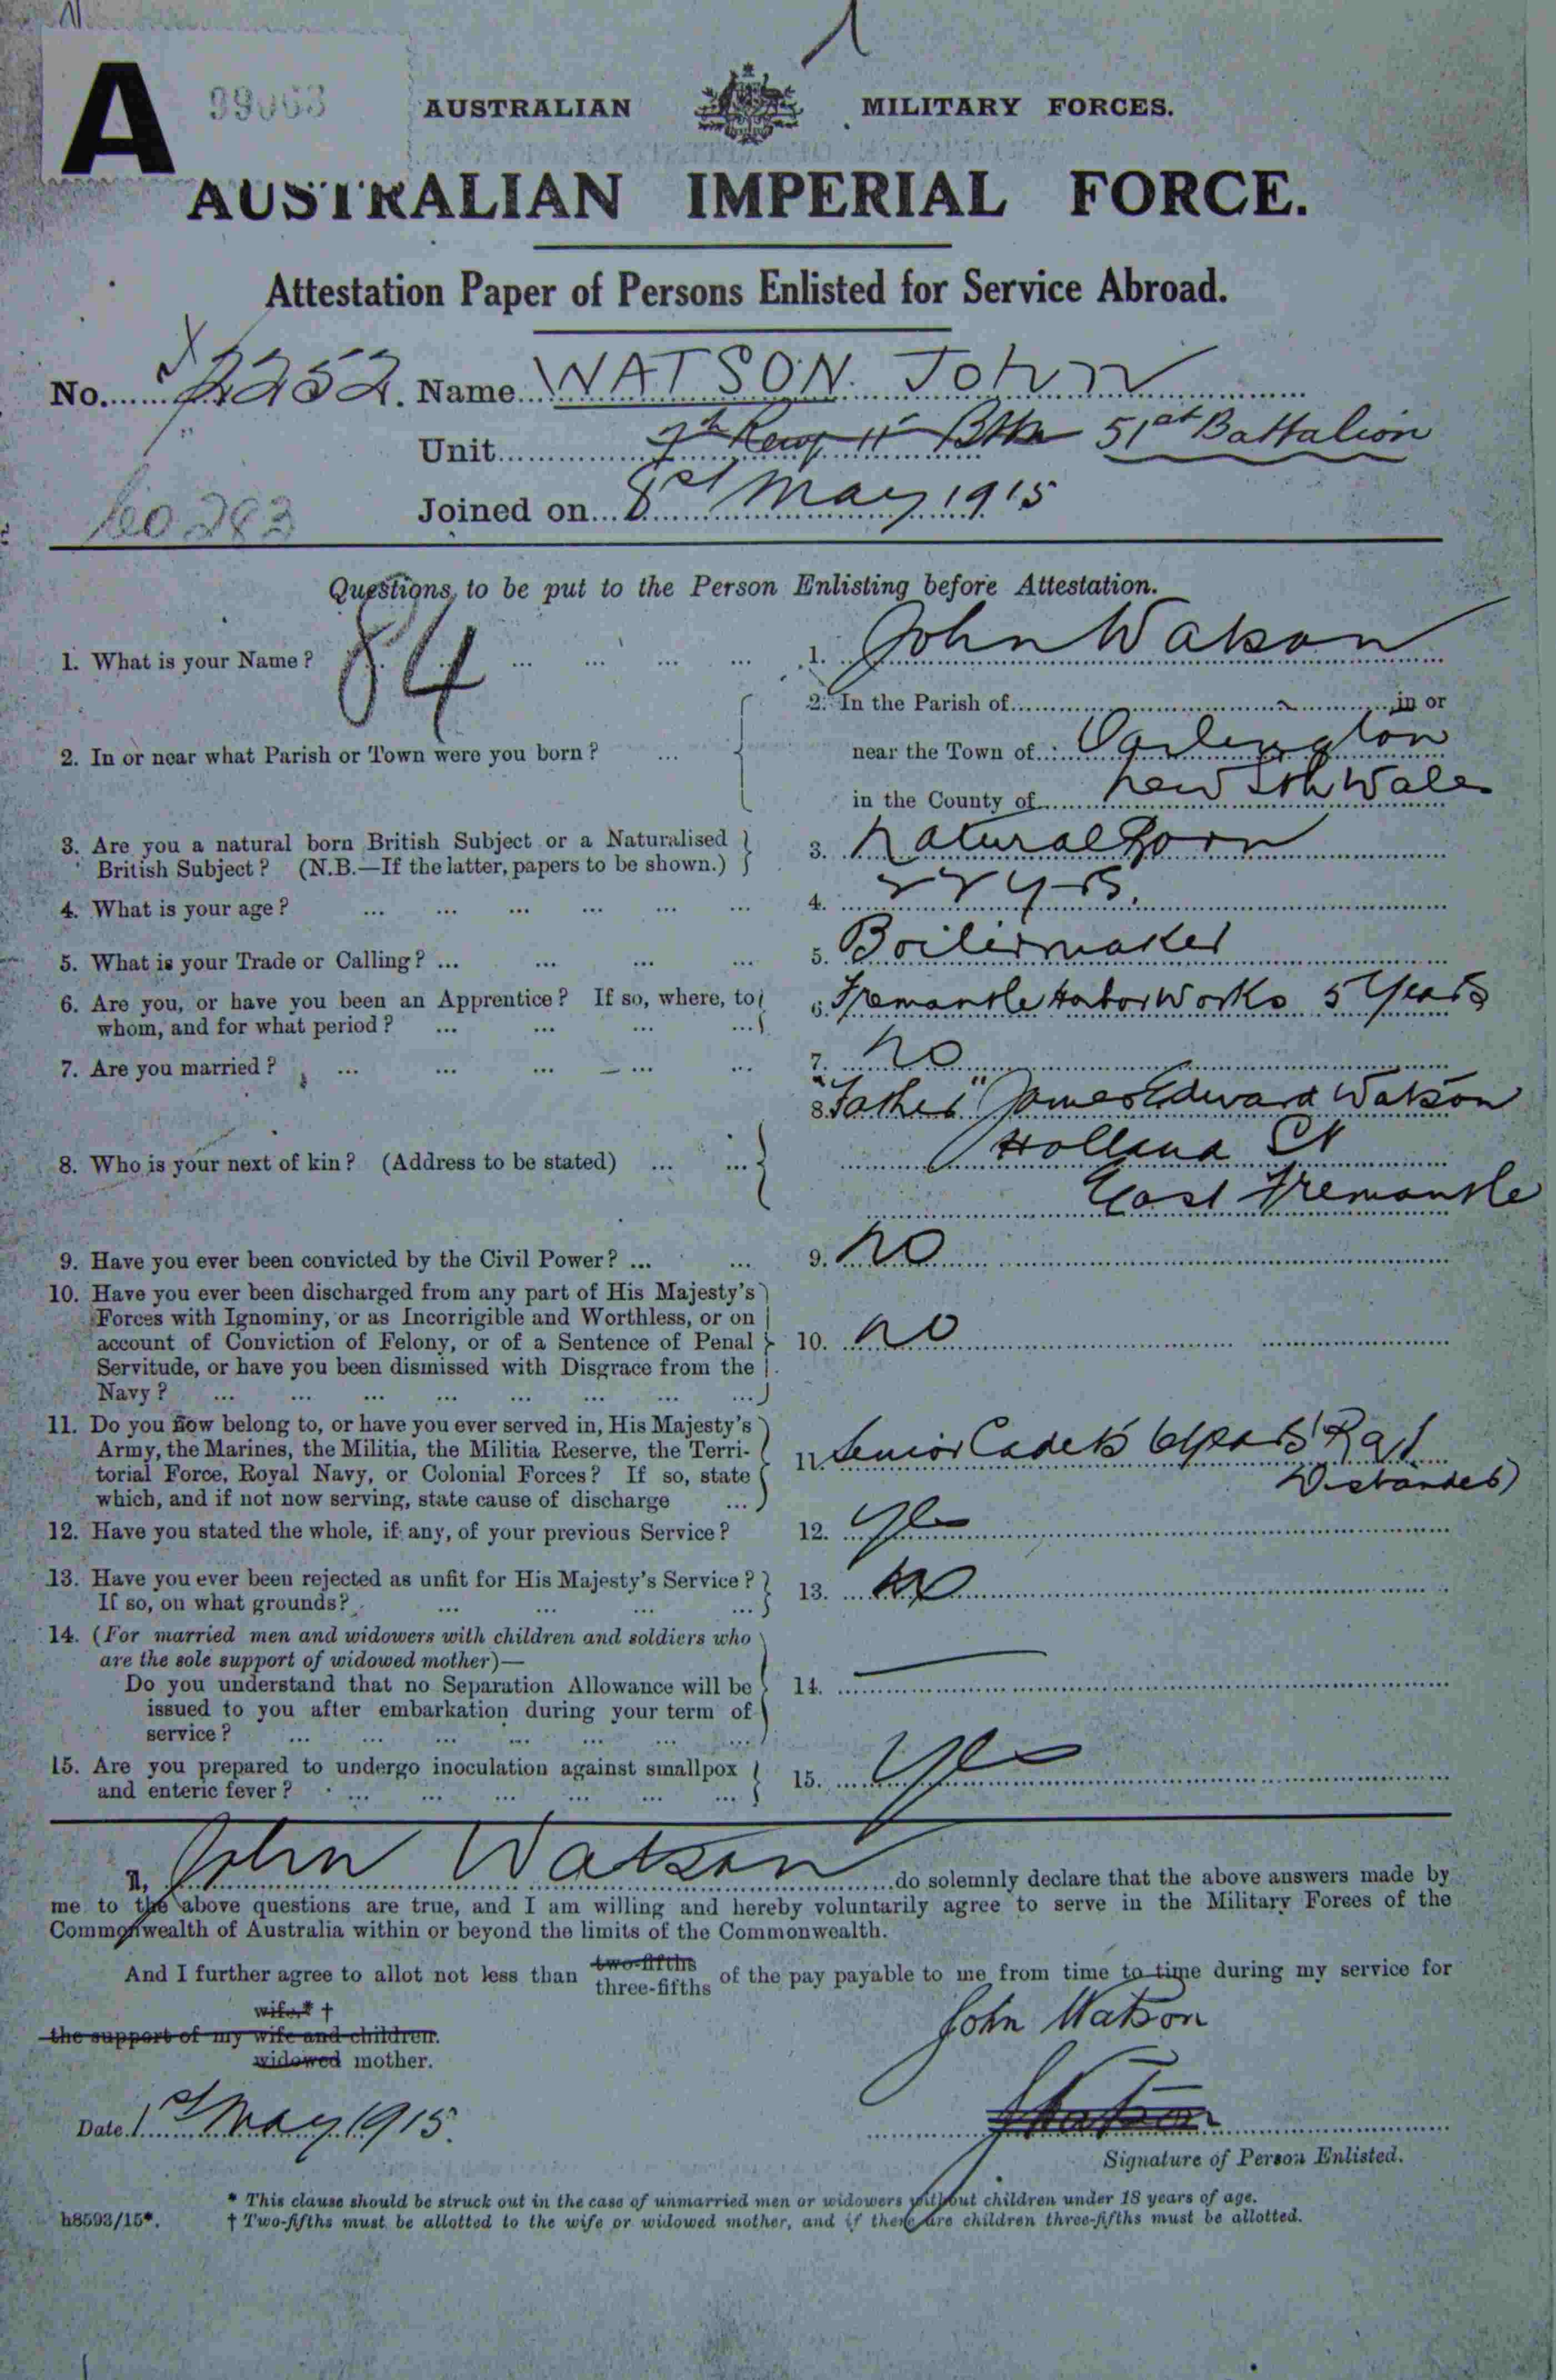 A 99063 AUSTRALIAN MILITARY FORCES.
AUSTRALIAN IMPERIAL FORCE.
Attestation Paper of Persons Enlisted for Service Abroad.
No. 2252. Name WATSON. John
Unit 7th Reinf 11 Btn 51st Battalion
Joined on May 1915
60282
Questions to be put to the Person Enlisting before Attestation.
84
1. What is your Name? ... ... ... ... 1. John Watson
2. In the Parish of in or
2. In or near what Parish or Town were you born? ... near the Town of Darlington
in the County of New Sth Wales
3. Are you a natural born British Subject or a Naturalised 3. Natural Born
British Subject? (N.B.—If the latter, papers to be shown.)
4. What is your age? ... ... ... ... ... ... 4. 22 yrs.
5. What is your Trade or Calling? ... ... ... ... 5. Boilermaker
6. Are you, or have you been an Apprentice? If so, where, to 6. Fremantle Harbor Works 5 Years
whom, and for what period? ... ... ... ...
7. Are you married? ... ... ... ... ... 7. No
8. "Father" James Edward Watson
8. Who is your next of kin? (Address to be stated) ... ... Holland St
East Fremantle
9. Have you ever been convicted by the Civil Power? ... ... 9. No
10. Have you ever been discharged from any part of His Majesty's
Forces with Ignominy, or as Incorrigible and Worthless, or on
account of Conviction of Felony, or of a Sentence of Penal 10. No
Servitude, or have you been dismissed with Disgrace from the
Navy? ... ... ... ... ... ... ... ...
11. Do you now belong to, or have you ever served in, His Majesty's
Army, the Marines, the Militia, the Militia Reserve, the Terri- 11. Senior Cadets
torial Force, Royal Navy, or Colonial Forces? If so, state
which, and if not now serving, state cause of discharge ... Disbanded)
12. Have you stated the whole, if any, of your previous Service? 12. Yes
13. Have you ever been rejected as unfit for His Majesty's Service? 13. No
If so, on what grounds? ... ... ... ...
14. (For married men and widowers with children and soldiers who
are the sole support of widowed mother)—
Do you understand that no Separation Allowance will be 14.
issued to you after embarkation during your term of
service? ... ... ... ... ... ... ...
15. Are you prepared to undergo inoculation against smallpox 15. Yes
and enteric fever? ... ... ... ... ... ...
I, John Watson do solemnly declare that the above answers made by
me to the above questions are true, and I am willing and hereby voluntarily agree to serve in the Military Forces of the
Commonwealth of Australia within or beyond the limits of the Commonwealth.
two-fifths
And I further agree to allot not less than three-fifths of the pay payable to me from time to time during my service for
wife* †
the support of my wife and children.
widowed mother.
John Watson
Date 1st May 1915. J Watson
Signature of Person Enlisted.
* This clause should be struck out in the case of unmarried men or widowers without children under 18 years of age.
h8593/15*. † Two-fifths must be allotted to the wife or widowed mother, and if there are children three-fifths must be allotted.